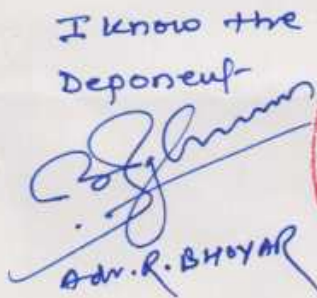 I know the
Deponent
Adv. R. BHOYAR